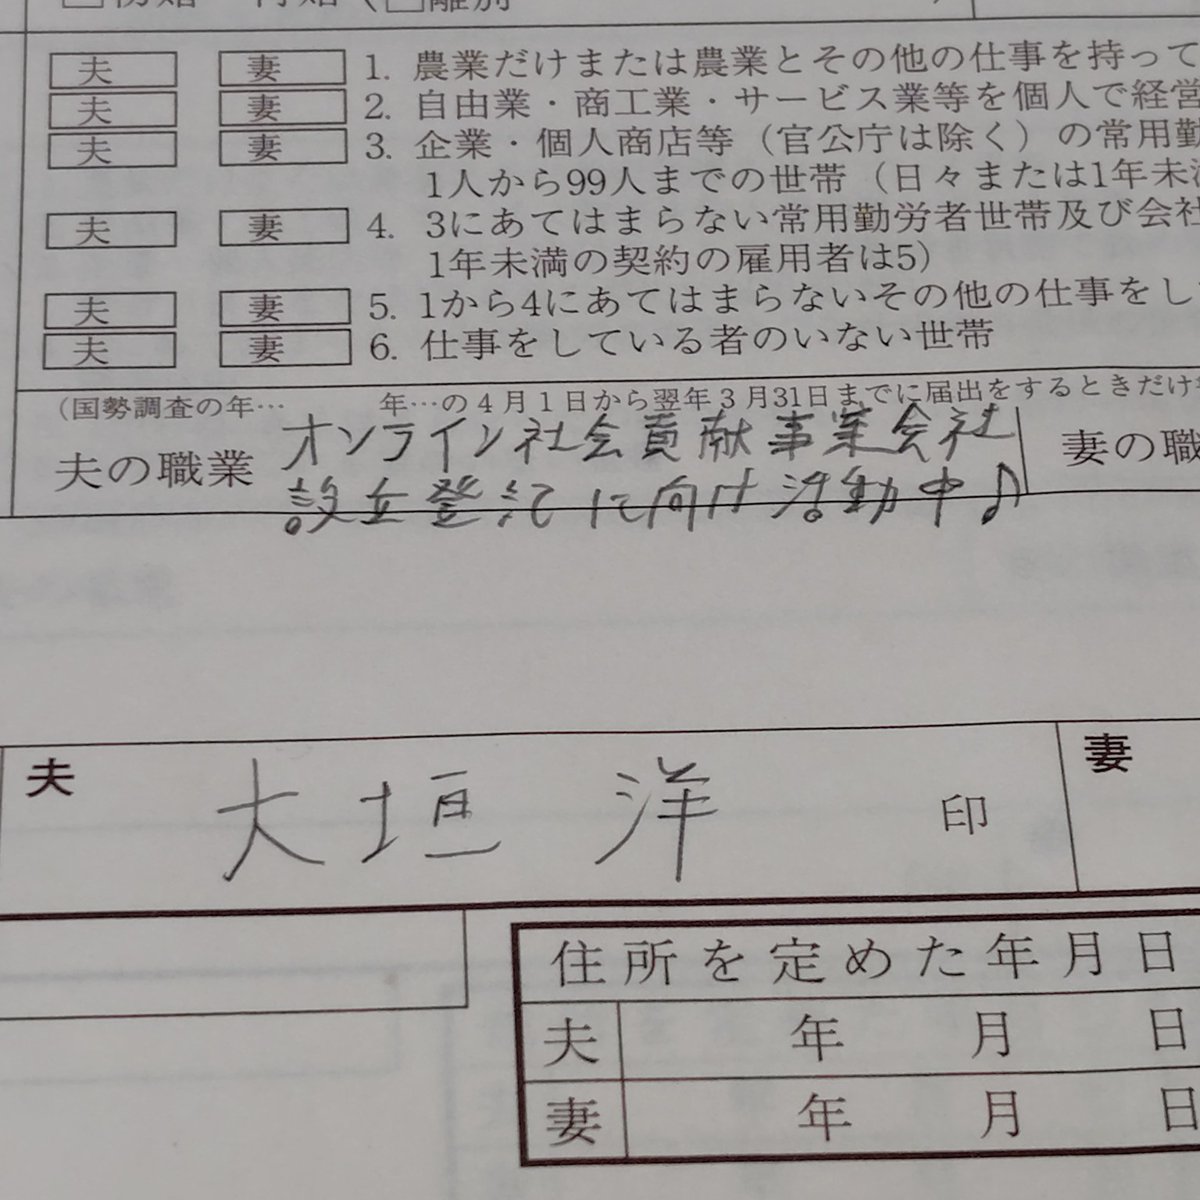 夫 妻 1. 農業だけまたは農業とその他の仕事を持って
夫 妻 2. 自由業・商工業・サービス業等を個人で経営
夫 妻 3. 企業・個人商店等（官公庁は除く）の常用勤
1人から99人までの世帯（日々または1年未満
夫 妻 4. 3にあてはまらない常用勤労者世帯及び会社
1年未満の契約の雇用者は5）
夫 妻 5. 1から4にあてはまらないその他の仕事をし
夫 妻 6. 仕事をしている者のいない世帯
（国勢調査の年… 年…の4月1日から翌年3月31日までに届出をするときだけ
夫の職業 オンライン社会貢献事業会社 妻の職
設立登記に向け活動中♪
夫 大垣 洋 印 妻
住所を定めた年月日
夫 年 月 日
妻 年 月 日